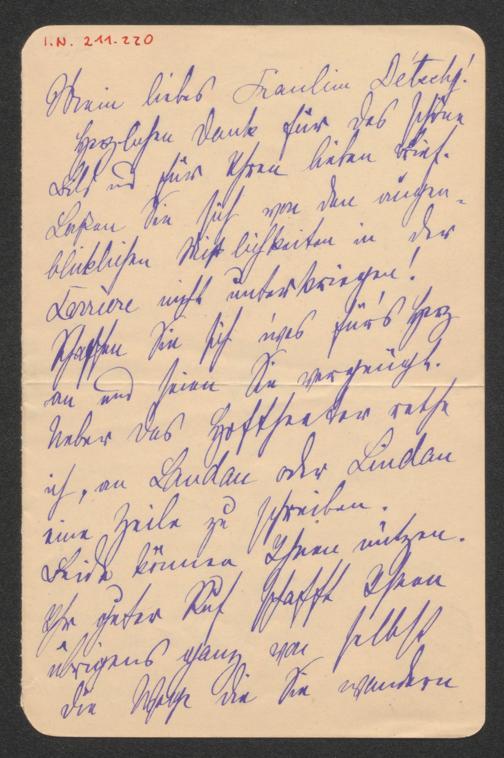 I.N. 211.220
Mein liebes Fräulein Détschy!
Herzlichen Dank für das schöne
Bild und für Ihren lieben Brief.
Lassen Sie sich von den augen-
blicklichen Mißlichkeiten in der
Carriere nicht unterkriegen!
Schaffen Sie sich was für's Herz
an und seien Sie vergnügt.
Ueber das Hoftheater rathe
ich, an Landau oder Lindau
eine Zeile zu schreiben.
Beide können Ihnen nützen.
Ihr guter Ruf schafft Ihnen
übrigens ganz von selbst
die Wege die Sie wandern